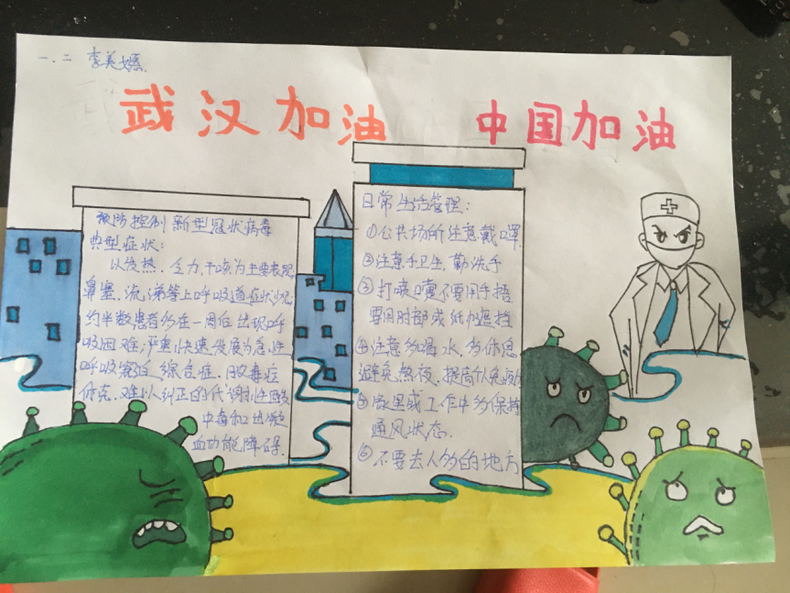 一.二 李美嬑
武汉加油 中国加油
预防控制新型冠状病毒
典型症状:
以发热、乏力、干咳为主要表现
鼻塞、流涕等上呼吸道症状少见
约半数患者多在一周后出现呼
吸困难,严重快速发展为急性
呼吸窘迫综合症、脓毒症
休克、难以纠正的代谢性酸
中毒和出凝
血功能障碍.
日常生活管理:
①公共场所注意戴口罩
②注意手卫生,勤洗手
③打喷嚏不要用手捂
要用肘部或纸巾遮挡
④注意多喝水,多休息
避免熬夜,提高个人免疫力
⑤家里或工作中多保持
通风状态.
⑥不要去人多的地方